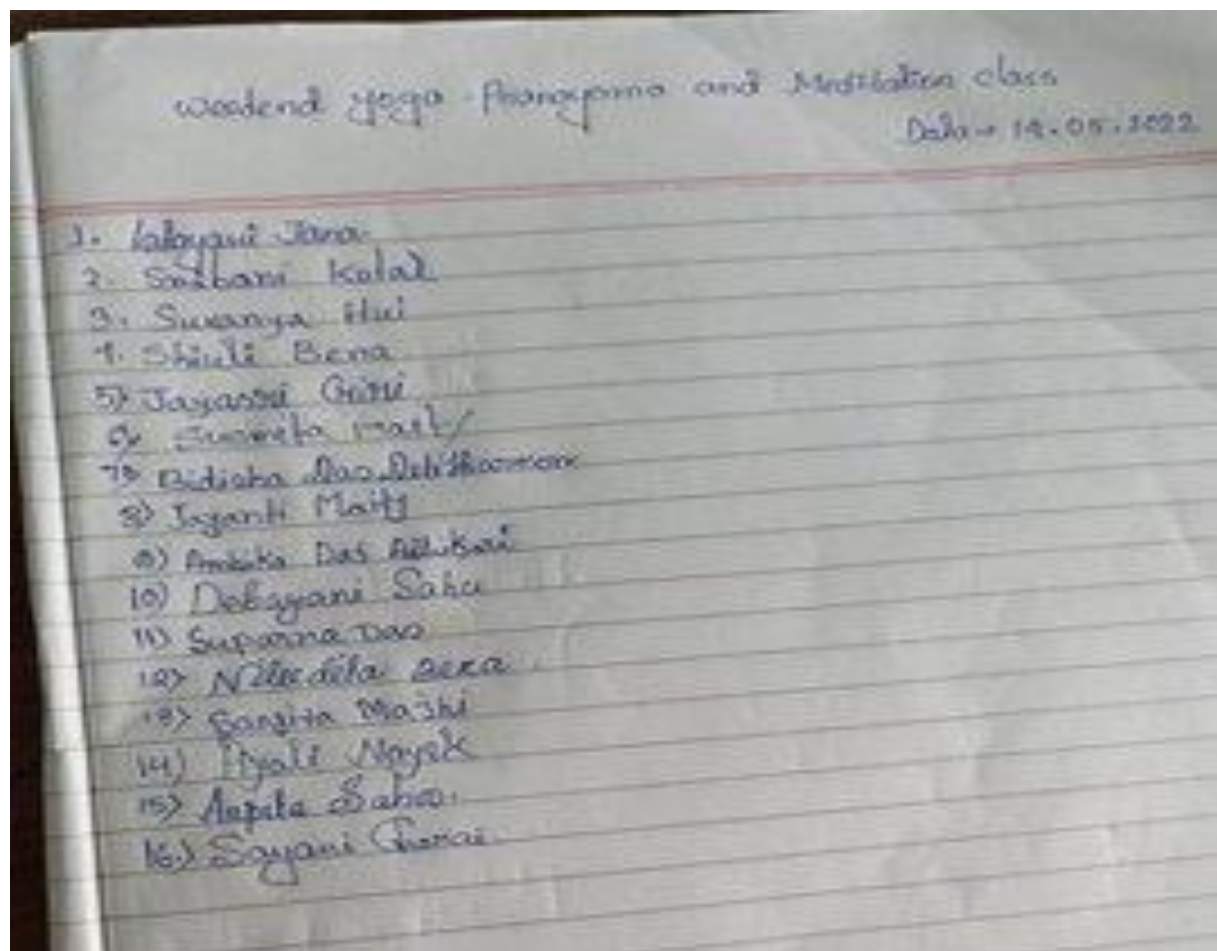 Weekend yoga Pranayama and Meditation class
Date → 14.05.2022
1. Jana
2. Srabani Kolal
3. Sukanya Hui
4. Shiuli Bera
5) Jayasri Giri
6) Susmita Maity
7) Bidisha Das
8) Jayanti Maity
9) Ambika Das Adhikari
10) Debayani Sahu
11) Suparna Das
12) Nibedita Bera
13) Sangita Majhi
14) Nayek
15) Arpita Sahoo
16) Sayani Ghorai